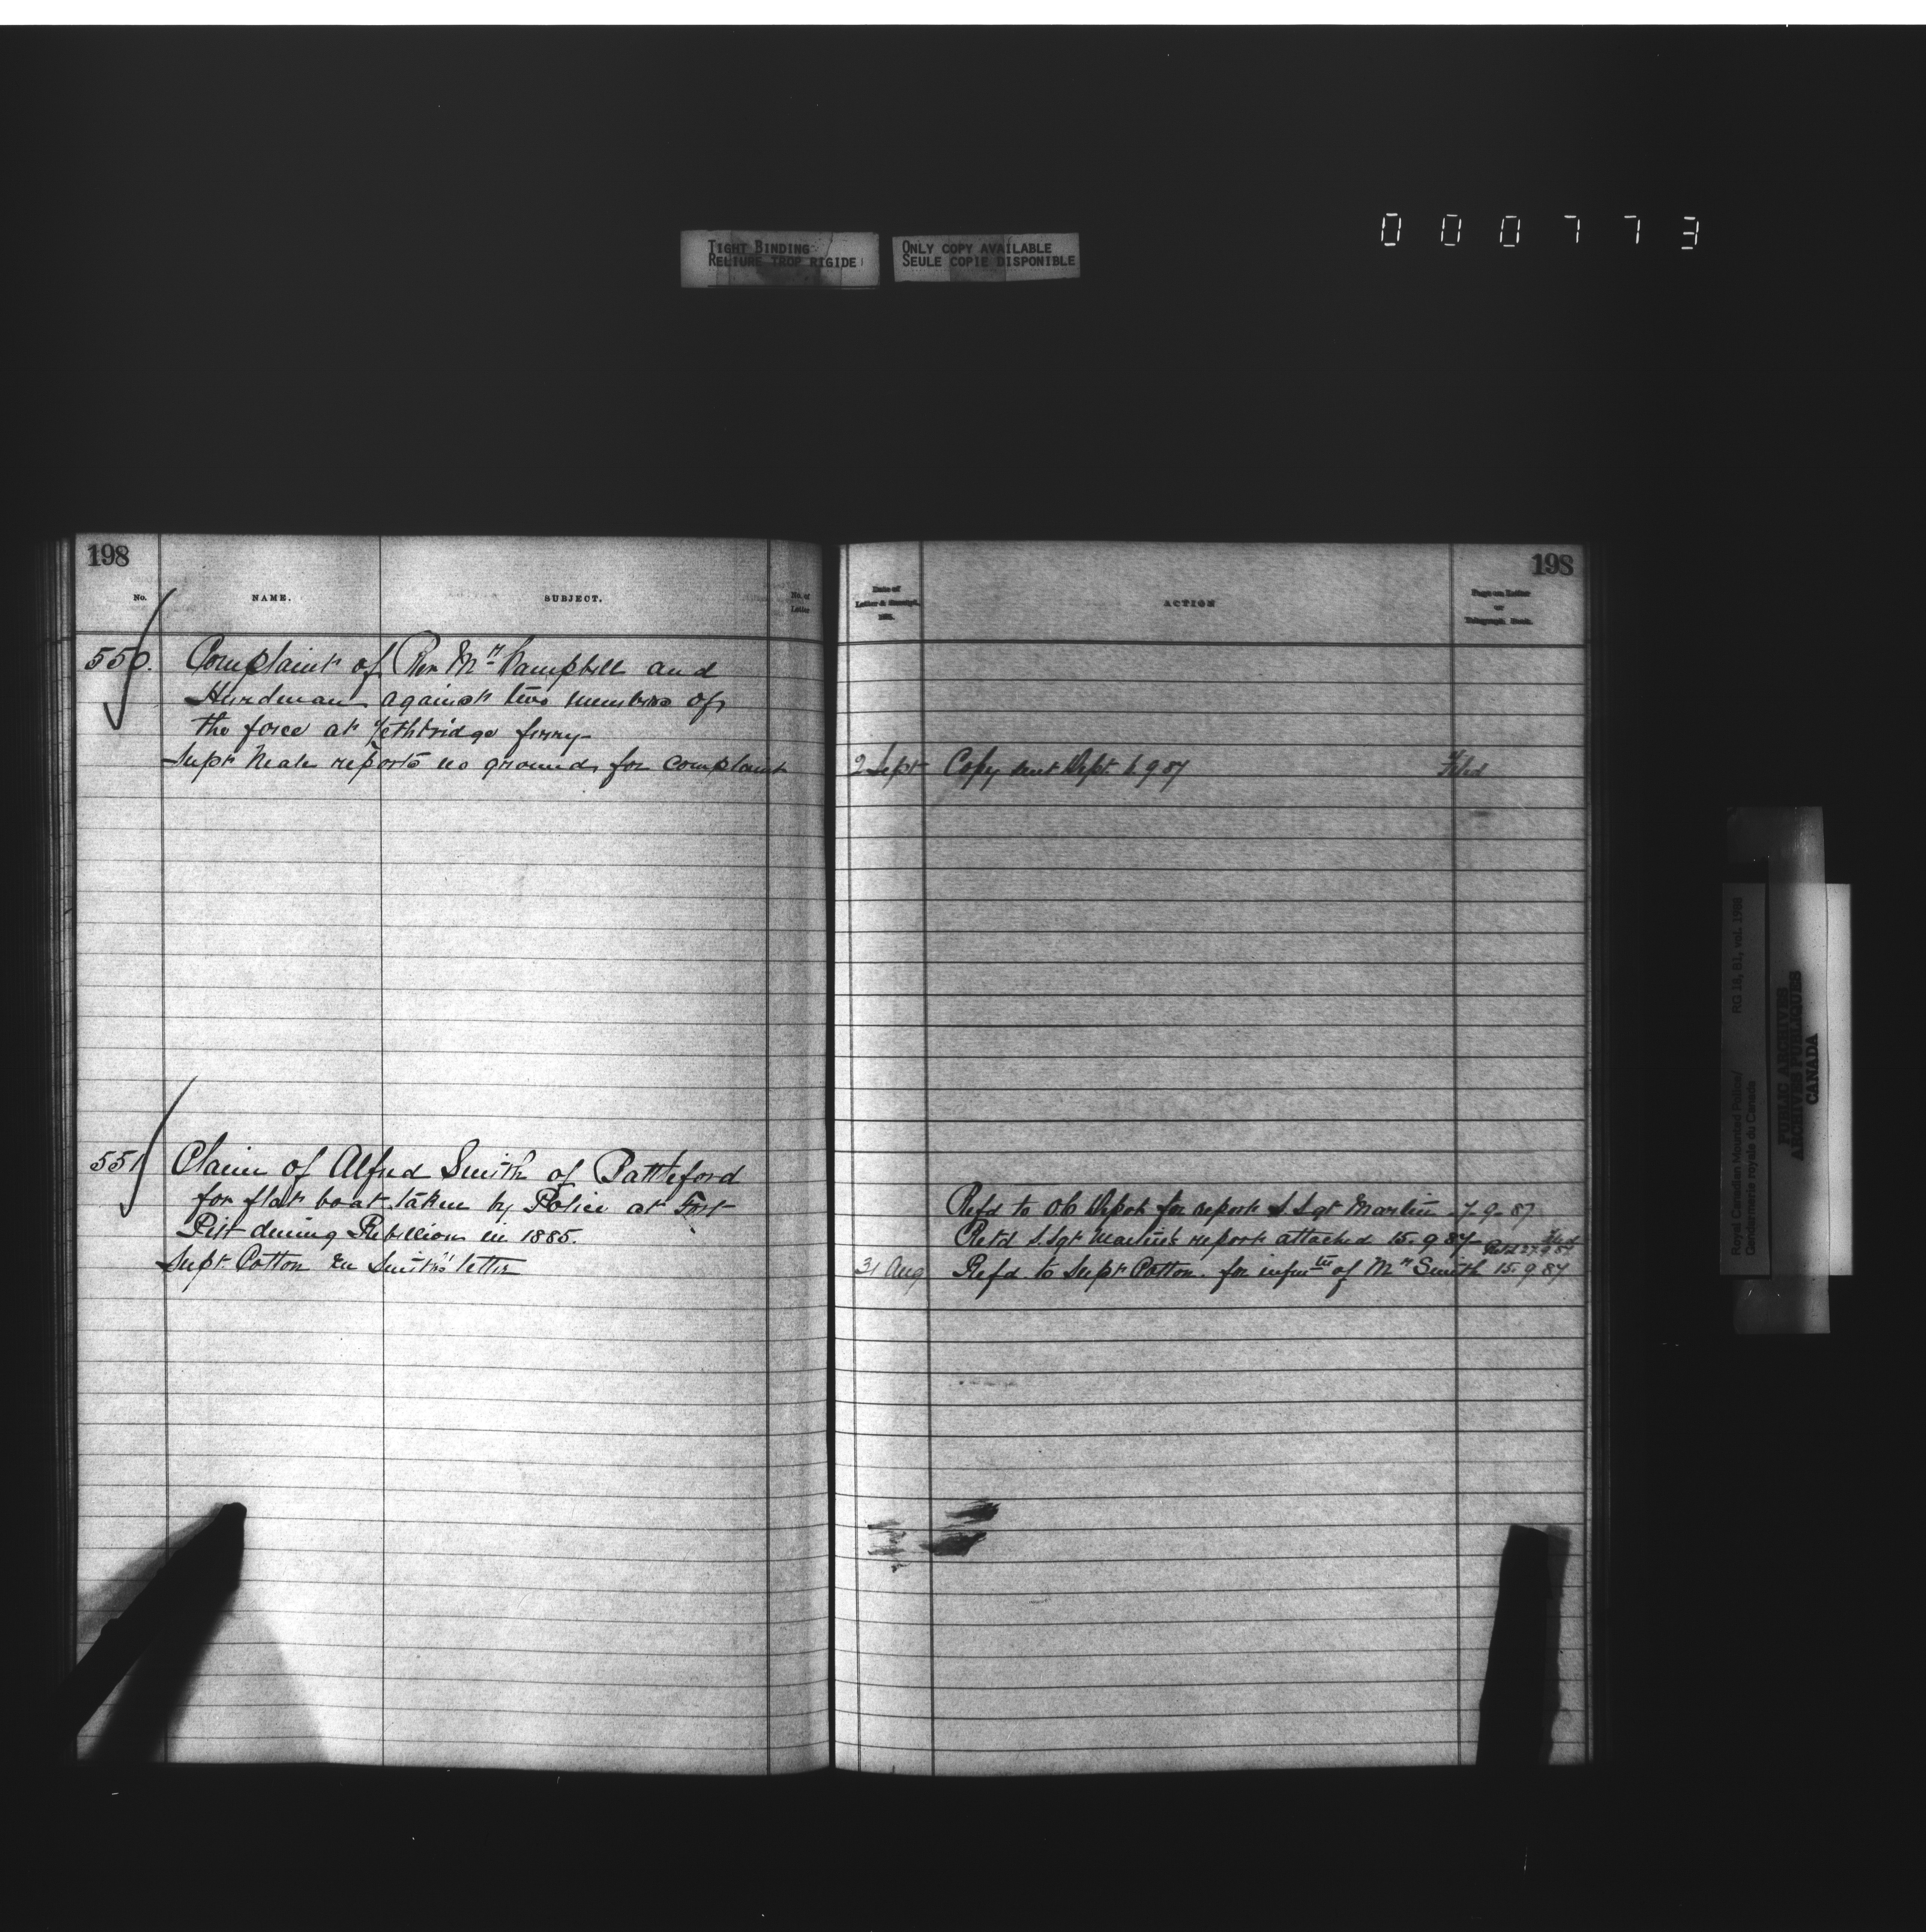 000773
TIGHT BINDING
RELIURE TROP RIGIDE
ONLY COPY AVAILABLE
SEULE COPIE DISPONIBLE
198
No.
NAME.
SUBJECT.
No. of
Letter
550. Complaint of Rev Mr Campbell and
Hurdman against two members of
the force at Lethbridge ferry
Supt Neale reports no grounds for complaint
551 Claim of Alfred Smith of Battleford
for flat boat taken by Police at Fort
Pitt during Rebellion in 1885.
Supt Cotton Smith's letter
198
Date of
Letter & Receipt,
188.
ACTION
Page on Letter
or
Telegraph Book.
2 Sept Copy sent Dept. 6 9 87 Filed
Refd to OC Depot for report S Sgt Martin 7-9-87
Retd S. Sgt Martin's report attached 15.9 87 Filed
Retd 27.9.87
31 Aug Refd to Supt Cotton. for infmtn of Mr Smith 15.9.87
Royal Canadian Mounted Police/
Gendarmerie royale du Canada
RG 18, B1, vol. 1988
PUBLIC ARCHIVES
ARCHIVES PUBLIQUES
CANADA